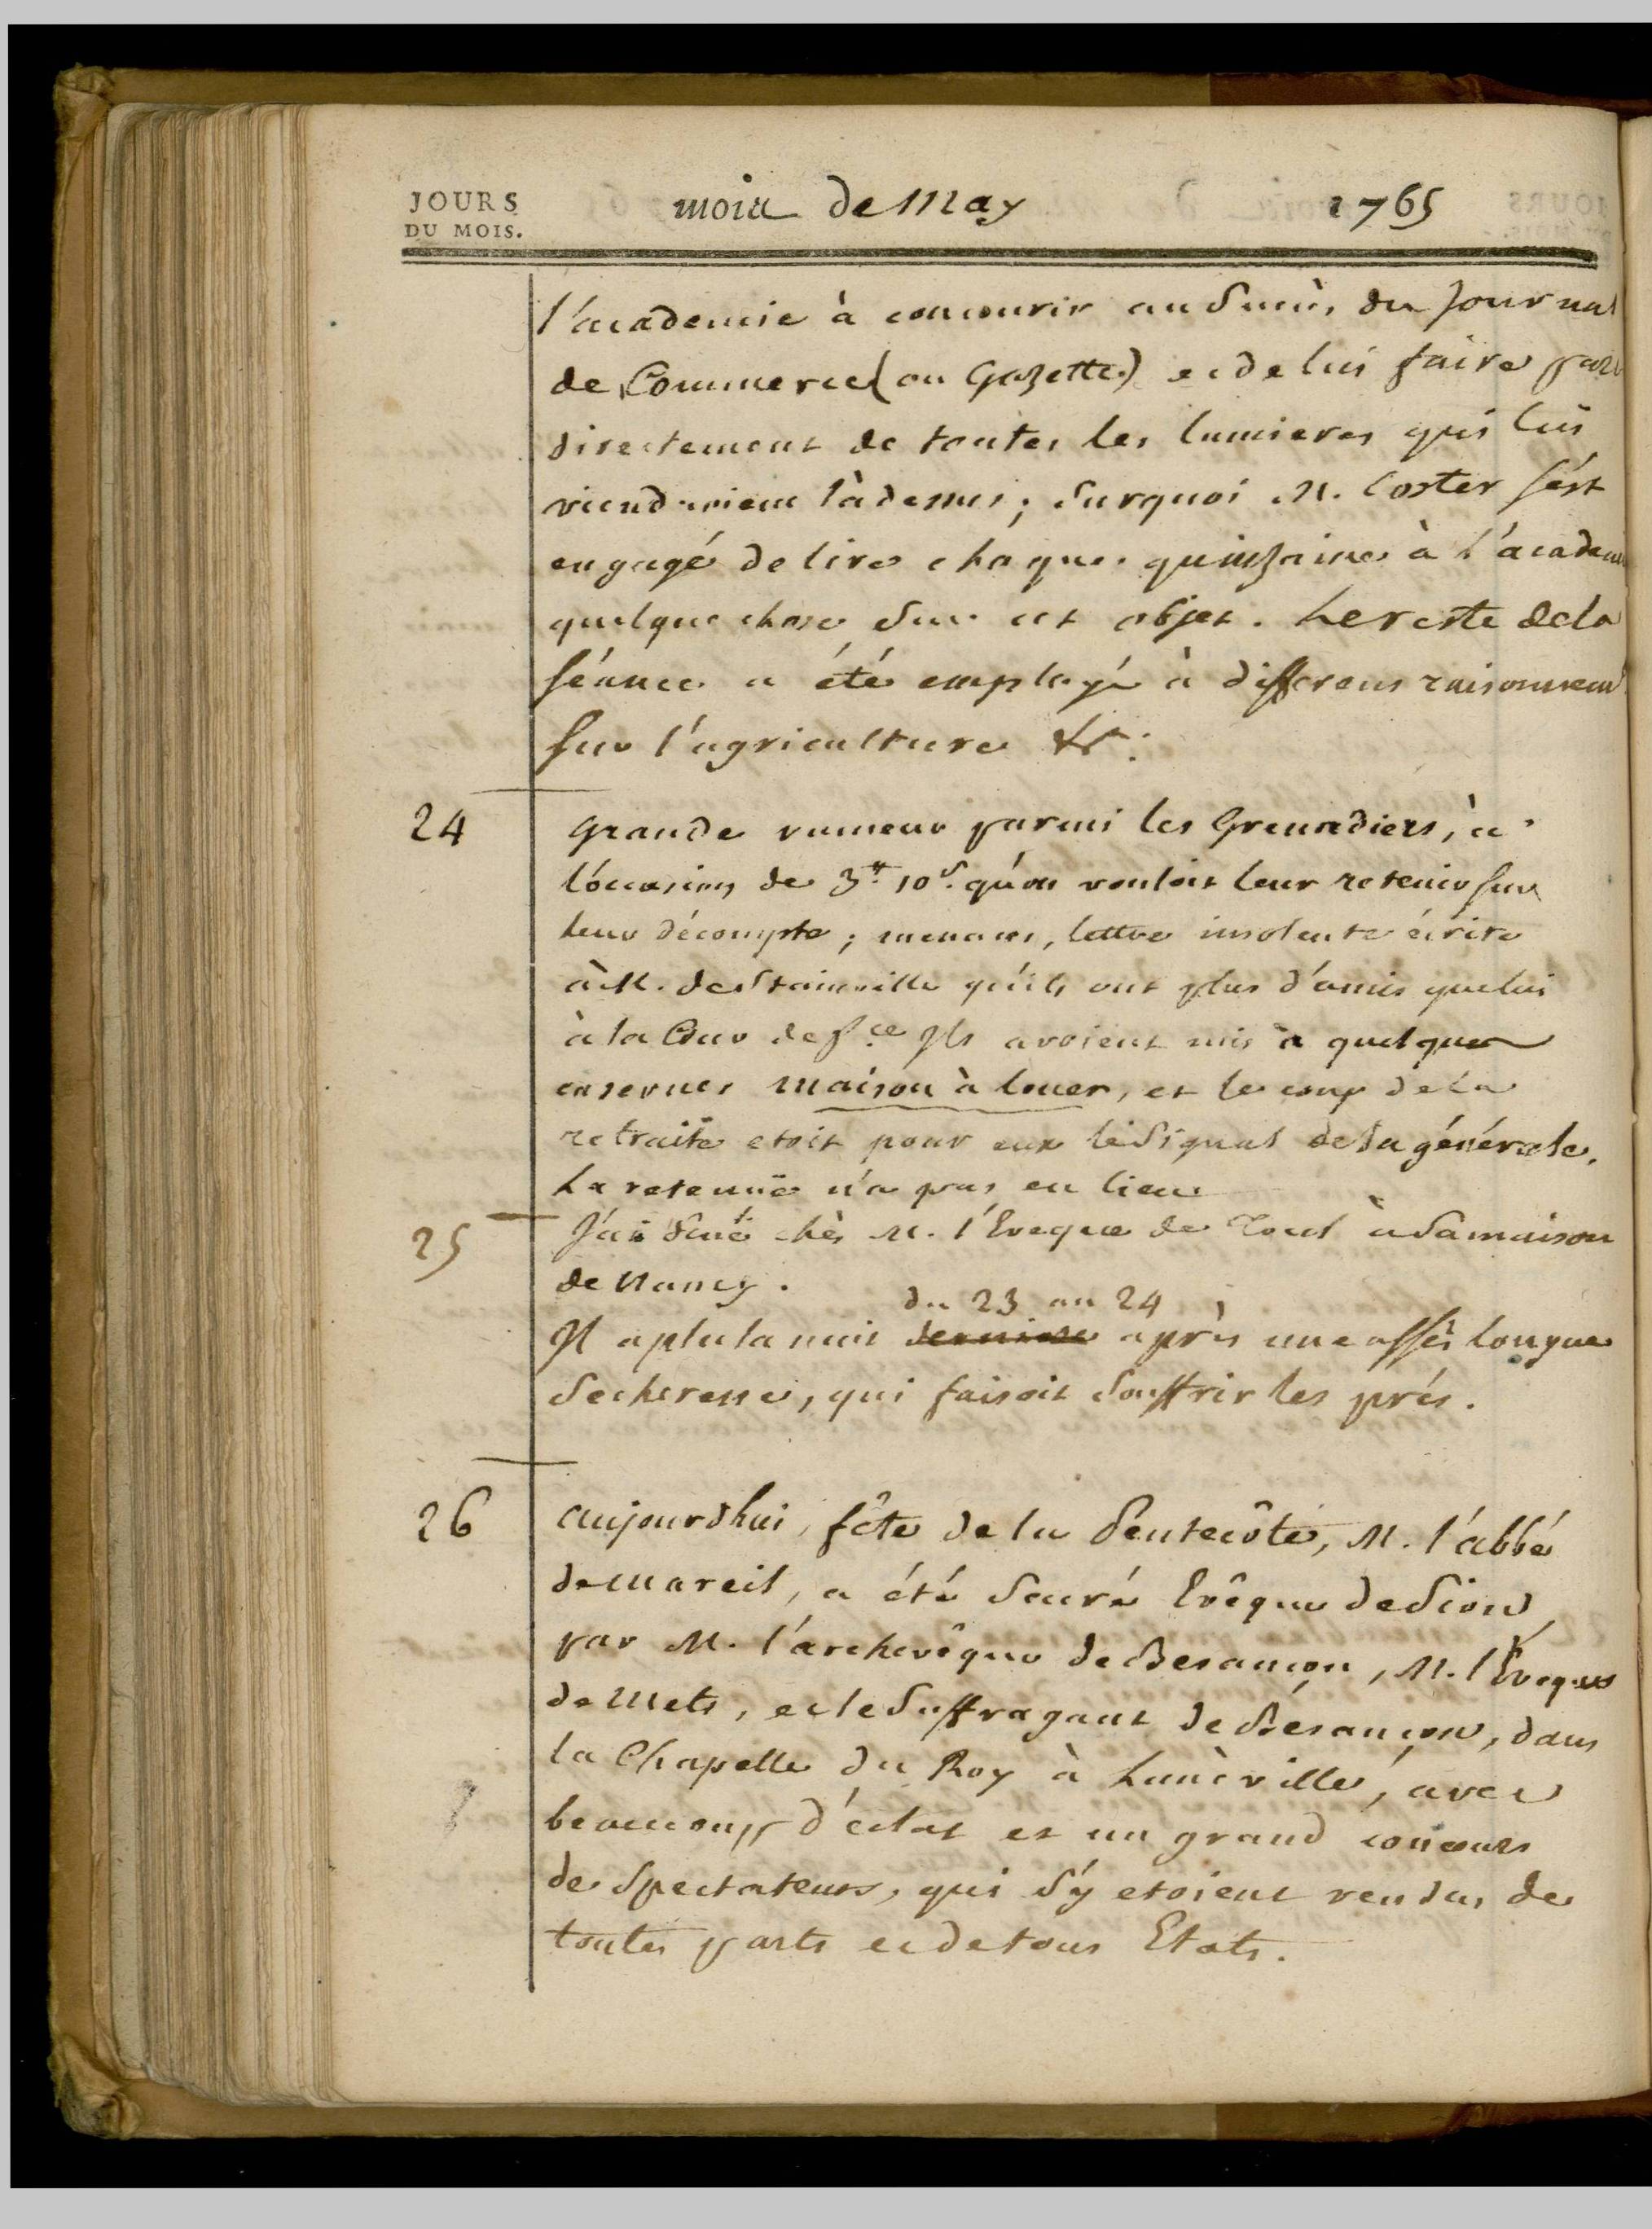 JOURS
DU MOIS.
mois de May 1765
l'academie à concourir au Succès du Journal
de Commerce (ou Gazette) et de lui faire part
directement de toutes les lumieres qui lui
viendroient là dessus ; Surquoi M. Coster s'ést
engagé de lire chaque quinzaine à l'academie
quelque chose Sur cet objet. Le reste de la
séance a été employé à differens raisonnemens
sur l'agriculture &c.
24
Grande rumeur parmi les Grenadiers, à
l'occasion de 3# 10s. qu'on vouloit leur retenir sur
leur décompte ; menaces, lettre insolente écrite
à M. de Stainville qu'ils ont plus d'amis que lui
à la Cour de fce Ils avoient mis à quelques
casernes maison à louer, et le coup de la
retraite etoit pour eux le Signal de la générale.
La retenuë n'a pas eu lieu
25
J'ai diné chès M. l'Eveque de Toul à Sa maison
de Nancy.
du 23 au 24
Il a plu la nuit derniere après une assés longue
Secheresse, qui faisoit Souffrir les prés.
26
Aujourdhui, fête de la Pentecôte, M. l'abbé
de Mareil, a été Sacré Evêque de Sion,
par M. l'archevêque de Besançon, M. l'Evêque
de Mets, et le Suffragant de Besançon, dans
la Chapelle du Roy à Lunèville, avec
beaucoup d'éclat et un grand concours
de Spectateurs, qui S'y etoient rendus de
toutes parts et de tous Etats.